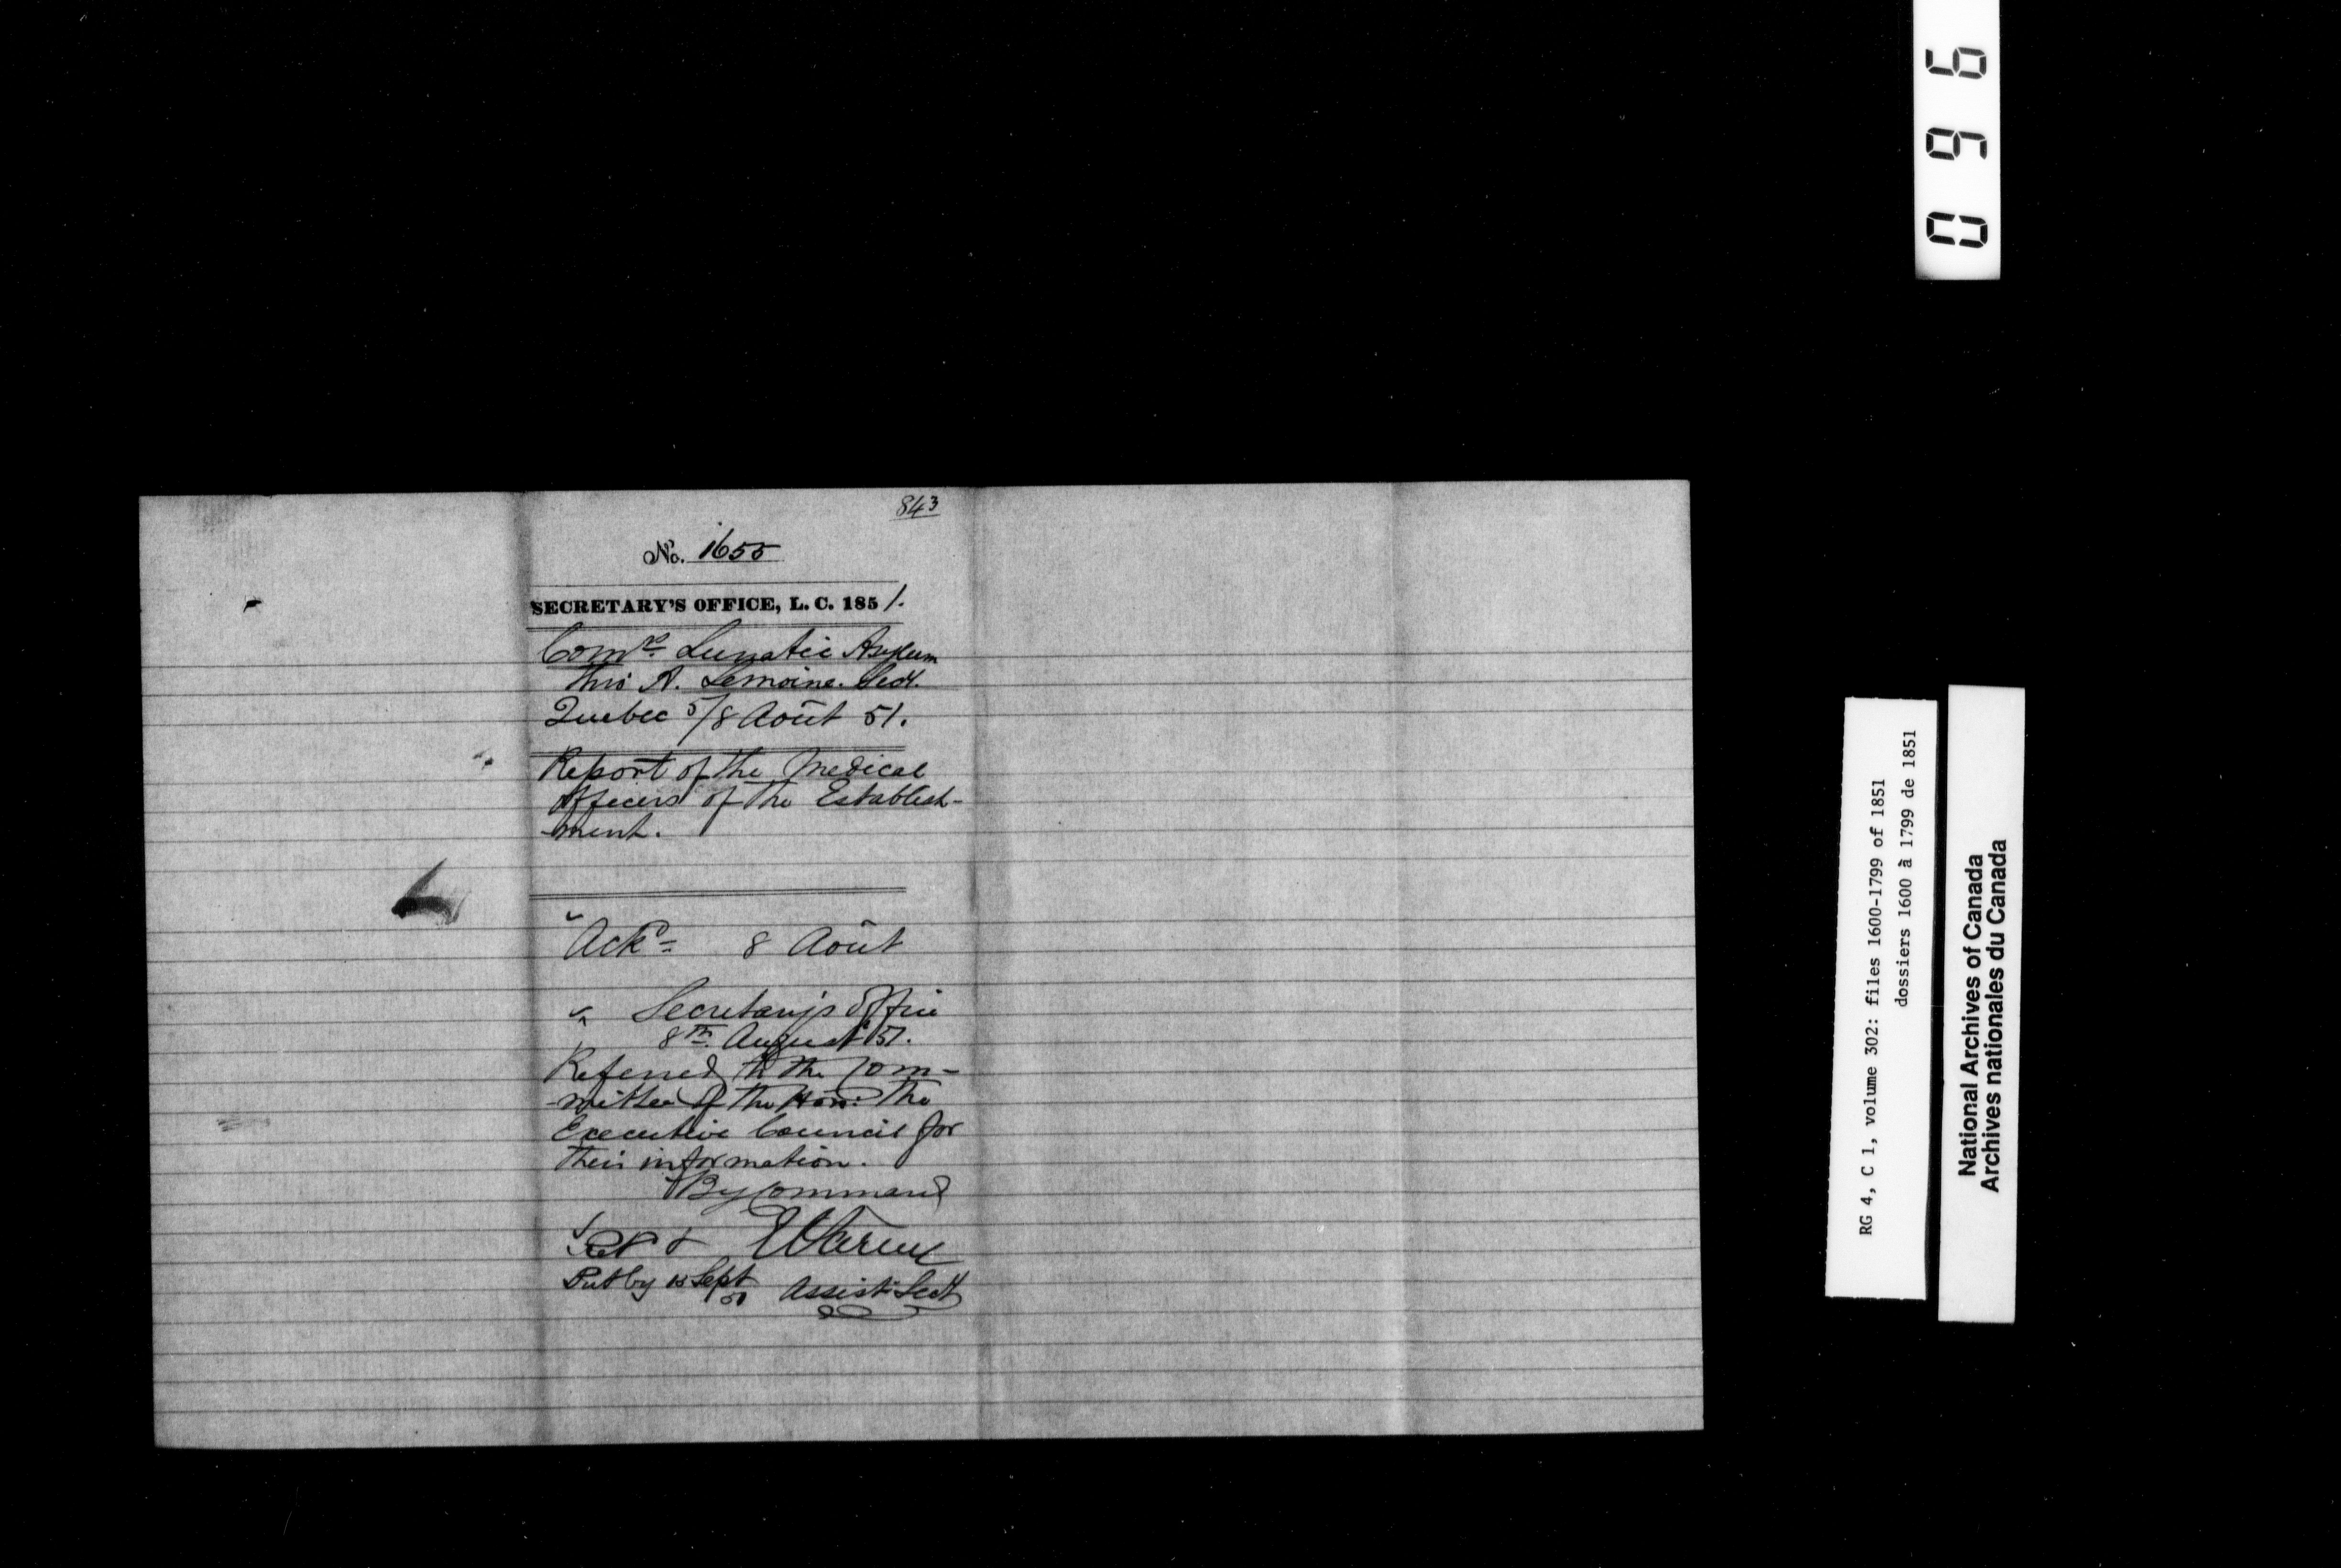 843
No. 1655
SECRETARY'S OFFICE, L. C. 1851.
Comrs. Lunatic Asylum
thro' A. Lemoine. Secy.
Quebec 5/8 Août 51.
Report of the Medical
officers of the Establish-
-ment.
Ackd. 8 Août
Secretary's Office
8th. August 51.
Referred to the Com-
-mittee of the Hon: the
Executive Council for
their information.
By Command
E Parent
Put by 15 Sept 51
Assist. Secy
096
RG 4, C 1, volume 302: files 1600-1799 of 1851
dossiers 1600 à 1799 de 1851
National Archives of Canada
Archives nationales du Canada